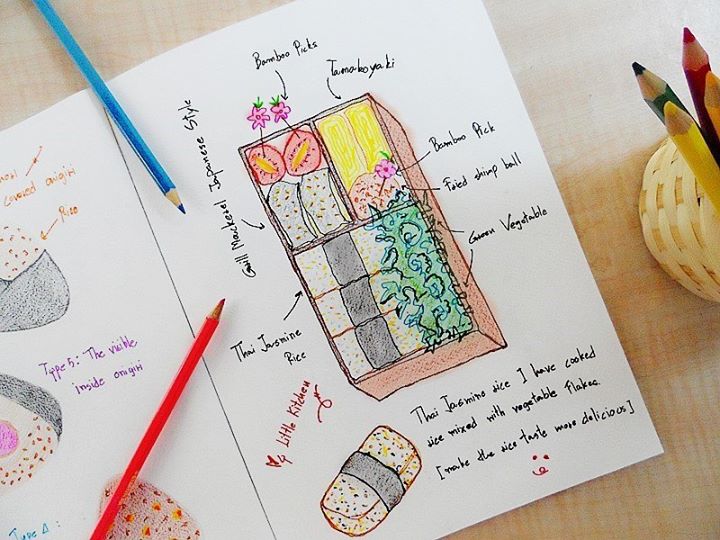 covered onigiri
Rice
Type 5: The visible
inside onigiri
Type A:
Bamboo Picks
Tamakoyaki
Grill Mackerel Japanese Style
Bamboo Pick
Fried shrimp ball
Green Vegetable
Thai Jasmine
Rice
My Little Kitchen
Thai Jasmine rice I have cooked
rice mixed with vegetable flakes
[make the rice taste more delicious]